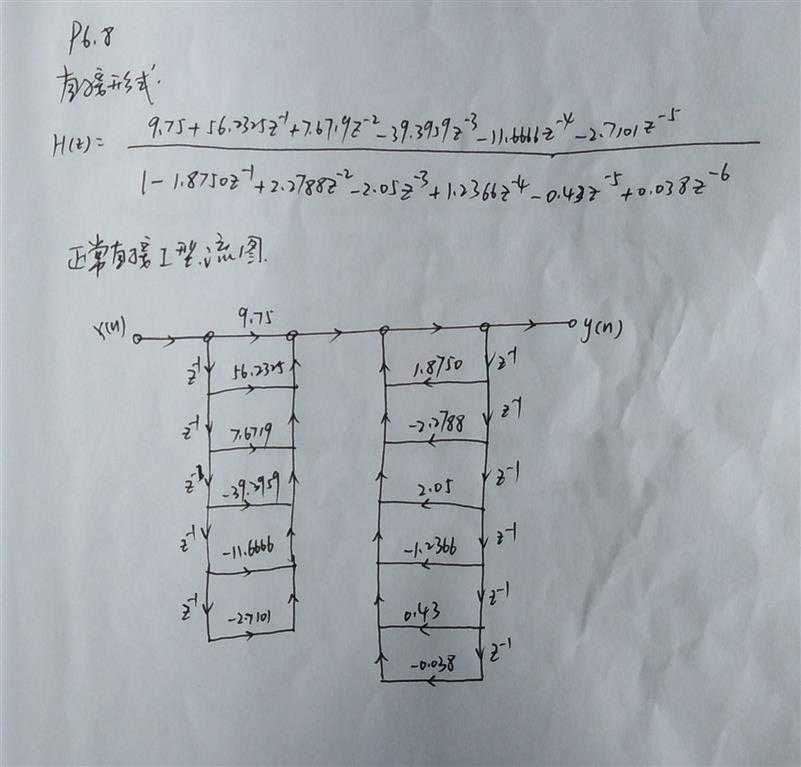 P6.8
直接形式.
H(z)= 9.75+56.2325z⁻¹+7.6719z⁻²-39.3959z⁻³-11.6666z⁻⁴-2.7101z⁻⁵
1-1.8750z⁻¹+2.2788z⁻²-2.05z⁻³+1.2366z⁻⁴-0.43z⁻⁵+0.038z⁻⁶
正常直接I型流图.
x(n) 9.75 y(n)
z⁻¹ 56.2325 1.8750 z⁻¹
z⁻¹ 7.6719 -2.2788 z⁻¹
z⁻¹ -39.3959 2.05 z⁻¹
z⁻¹ -11.6666 -1.2366 z⁻¹
z⁻¹ -2.7101 0.43 z⁻¹
-0.038 z⁻¹